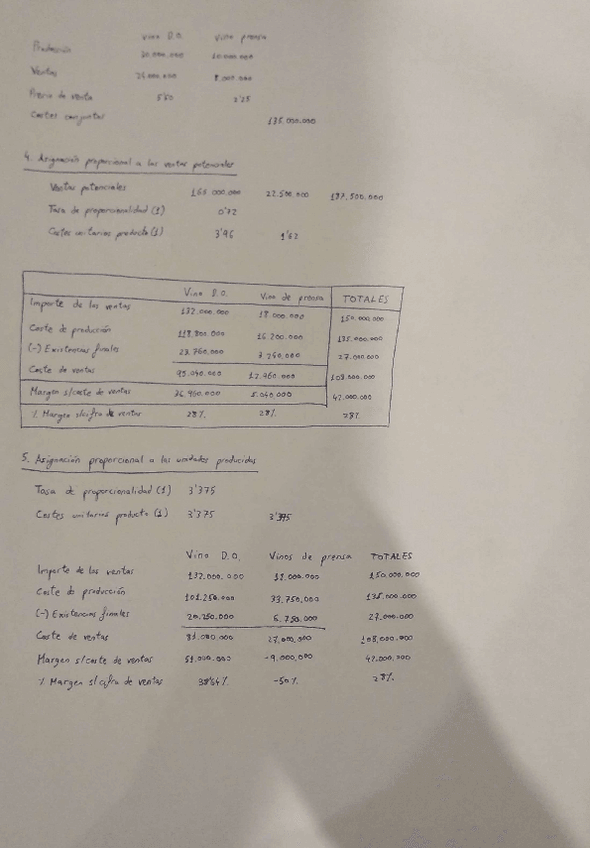 Vino D.O. Vino prensa
Producción 30.000.000 10.000.000
Ventas 24.000.000 8.000.000
Precio de venta 5'50 2'25
Costes conjuntos 135.000.000
4. Asignación proporcional a las ventas potenciales
Ventas potenciales 165.000.000 22.500.000 187.500.000
Tasa de proporcionalidad (1) 0'72
Costes unitarios producto (1) 3'96 1'62
Vino D.O. Vino de prensa TOTALES
Importe de las ventas 132.000.000 18.000.000 150.000.000
Coste de producción 118.800.000 16.200.000 135.000.000
(-) Existencias finales 23.760.000 3.240.000 27.000.000
Coste de ventas 95.040.000 12.960.000 108.000.000
Margen s/coste de ventas 36.960.000 5.040.000 42.000.000
% Margen s/cifra de ventas 28% 28% 28%
5. Asignación proporcional a las unidades producidas
Tasa de proporcionalidad (1) 3'375
Costes unitarios producto (1) 3'375 3'375
Vino D.O. Vinos de prensa TOTALES
Importe de las ventas 132.000.000 150.000.000
Coste de producción 101.250.000 33.750.000 135.000.000
(-) Existencias finales 20.250.000 6.750.000 27.000.000
Coste de ventas 81.000.000 27.000.000 108.000.000
Margen s/coste de ventas 51.000.000 -9.000.000 42.000.000
% Margen s/cifra de ventas 38'64% -50% 28%